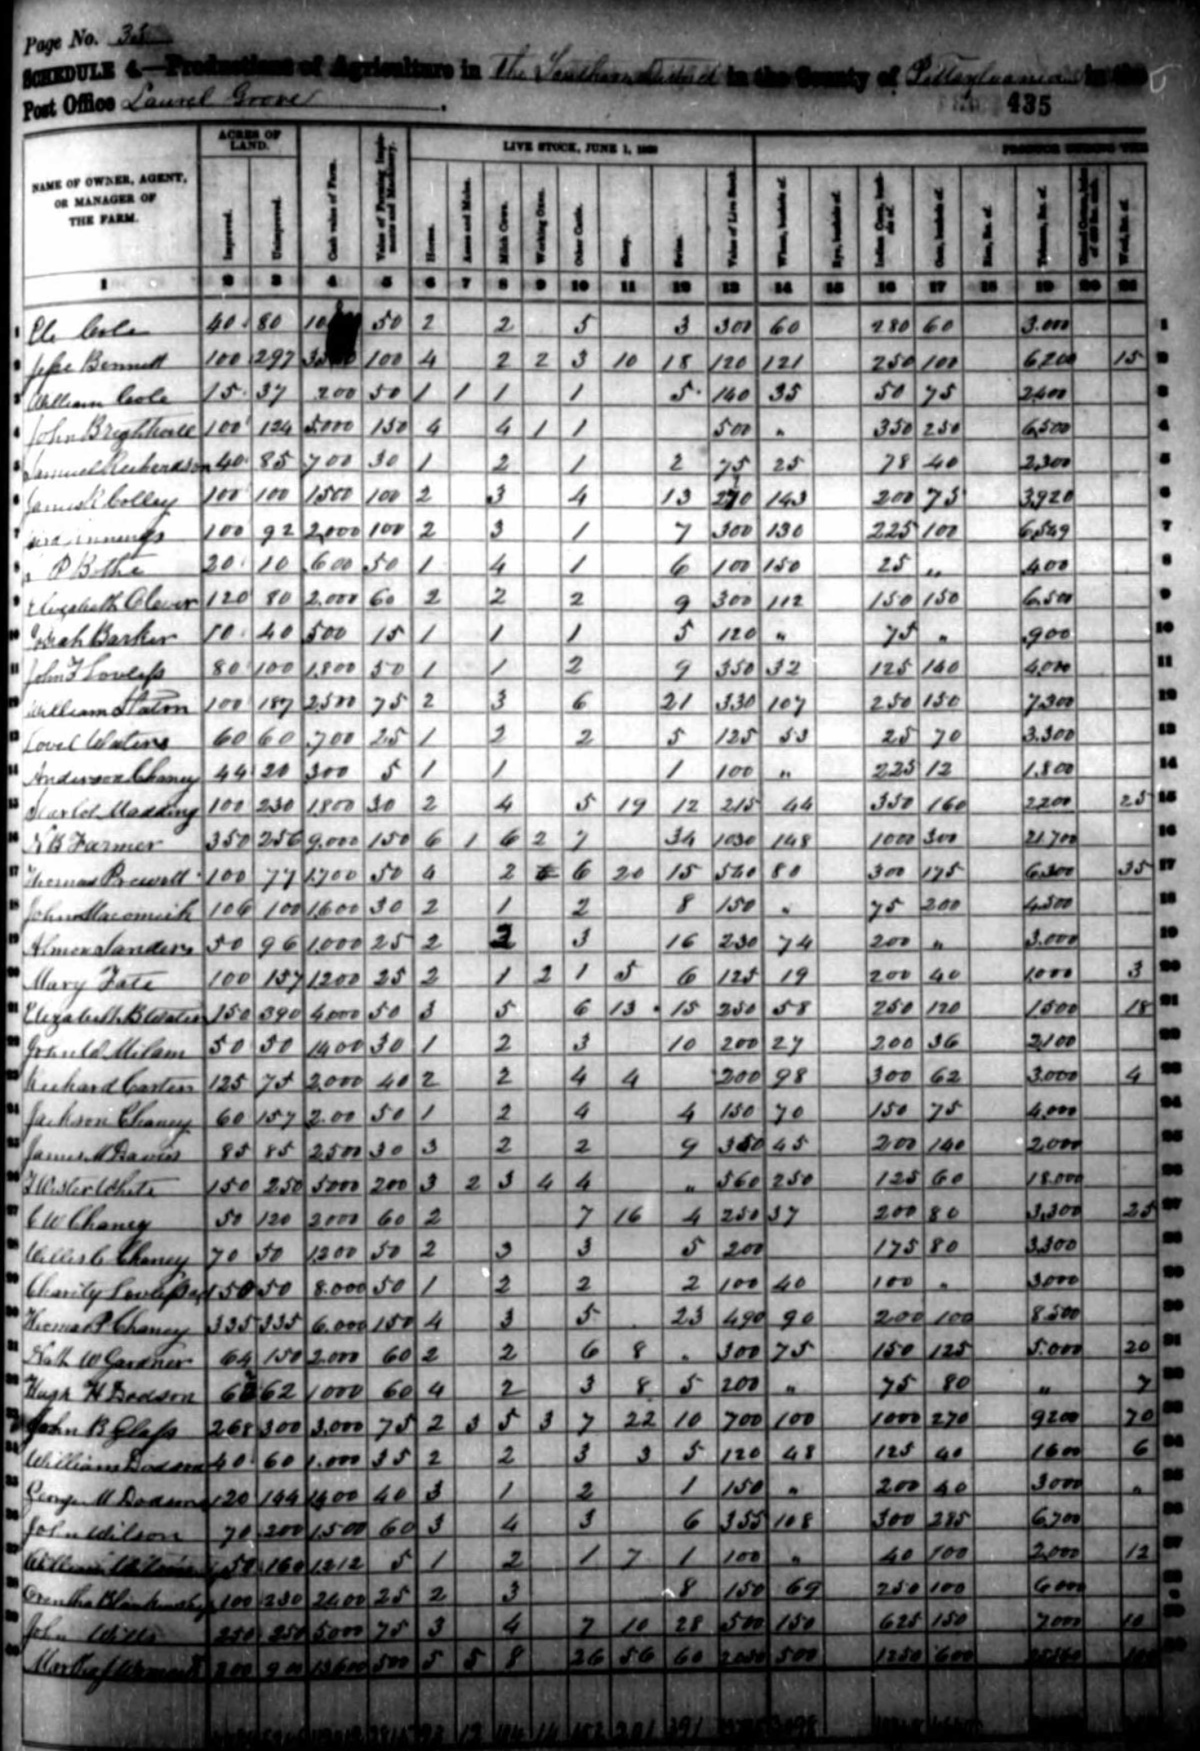 Page No. 35
SCHEDULE 4.—Productions of Agriculture in The Southern District in the County of Pittsylvania in the
Post Office Laurel Grove 435
ACRES OF LAND. LIVE STOCK, JUNE 1, PRODUCE DURING THE
NAME OF OWNER, AGENT, OR MANAGER OF THE FARM. Improved. Unimproved. Cash value of Farm. Value of Farming Implements and Machinery. Horses. Asses and Mules. Milch Cows. Working Oxen. Other Cattle. Sheep. Swine. Value of Live Stock. Wheat, bushels of. Rye, bushels of. Indian Corn, bushels of. Oats, bushels of. Rice, lbs. of. Tobacco, lbs. of. Ginned Cotton, bales of 400 lbs. each. Wool, lbs. of.
1 2 3 4 5 6 7 8 9 10 11 12 13 14 15 16 17 18 19 20 21
1 Cole 40 80 50 2 2 5 3 300 60 280 60 3.000 1
2 Jesse Bennett 100 297 100 4 2 2 3 10 18 120 121 250 100 6200 15 2
3 William Cole 15 37 200 50 1 1 1 1 5 140 35 50 75 2400 3
4 John Brightwell 100 124 5000 150 4 4 1 1 500 " 350 250 6,500 4
5 Samuel Richardson 40 85 700 30 1 2 1 2 75 25 78 40 2,300 5
6 James Colley 100 100 1500 100 2 3 4 13 143 200 75 3,920 6
7 100 92 2,000 100 2 3 1 7 300 130 225 100 6,549 7
8 P 20 10 600 50 1 4 1 6 100 150 25 " 400 8
9 Elizabeth 120 80 2.000 60 2 2 2 9 300 112 150 150 6,500 9
10 Barker 40 500 15 1 1 1 5 120 " 75 " 900 10
11 John F Lovelass 80 100 1.800 50 1 1 2 9 350 32 125 140 4,000 11
12 William Staton 100 187 2500 75 2 3 6 21 330 107 250 150 7,300 12
13 Waters 60 60 700 25 1 2 2 5 125 53 25 70 3.300 13
14 Anderson Chaney 44 20 300 5 1 1 1 100 " 225 12 1.800 14
15 Madding 100 230 1.800 30 2 4 5 19 12 215 44 350 160 2200 25 15
16 B Farmer 350 256 9.000 150 6 1 6 2 7 34 1030 148 1000 300 21.700 16
17 Thomas Prewett 100 77 1,700 50 4 2 6 20 15 540 80 300 175 6,300 35 17
18 John 106 100 1,600 30 2 1 2 8 150 " 75 200 4,500 18
19 Sanders 50 96 1,000 25 2 2 3 16 230 74 200 " 3.000 19
20 Mary 100 157 1200 25 2 1 2 1 5 6 125 19 200 40 1,000 3 20
21 Elizabeth 150 390 4,000 50 3 5 6 13 15 250 58 250 120 1500 18 21
22 Milam 50 50 1400 30 1 2 3 10 200 27 200 36 2,100 22
23 Richard Carter 125 75 2,000 40 2 2 4 4 200 98 300 62 3.000 4 23
24 Jackson Chaney 60 157 2.00 50 1 2 4 4 150 70 150 75 4,000 24
25 James M Davis 85 85 2500 30 3 2 2 9 45 200 140 2,000 25
26 White 150 250 5000 200 3 2 3 4 4 " 560 250 125 60 18.000 26
27 C W Chaney 50 120 2000 60 2 7 16 4 250 37 200 80 3,300 25 27
28 Chaney 70 50 1200 50 2 3 3 5 200 175 80 3,300 28
29 Charity 150 50 8.000 50 1 2 2 2 100 40 100 " 3,000 29
30 Thomas P Chaney 335 335 6.000 150 4 3 5 23 490 90 200 100 8,500 30
31 Nath W Gardner 64 150 2.000 60 2 2 6 8 " 300 75 150 125 5.000 20 31
32 Hugh H Dodson 62 1000 60 4 2 3 8 5 200 " 75 80 " 7 32
33 John B Glass 268 300 3,000 75 2 3 5 3 7 22 10 700 100 1000 270 9200 70 33
34 William Dodson 40 60 1.000 35 2 2 3 3 5 120 48 125 40 1600 6 34
35 George M Dodson 120 144 1400 40 3 1 2 1 150 " 200 40 3000 " 35
36 John Wilson 70 200 1,500 60 3 4 3 6 355 108 300 285 6,700 36
37 William 50 160 1212 5 1 2 1 7 1 100 " 40 100 2,000 12 37
38 Blankenship 100 230 2400 25 2 3 8 150 69 250 100 6000 38
39 John 250 250 5000 75 3 4 7 10 28 500 150 625 150 7000 10 39
40 500 5 5 8 26 56 60 500 1250 600 40